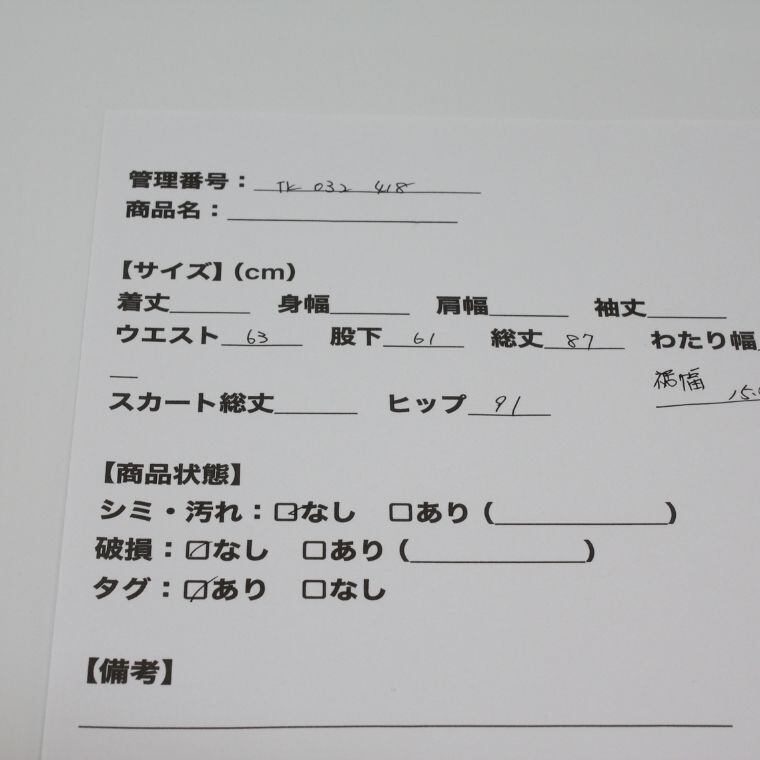 管理番号： TK 032 418
商品名：
【サイズ】(cm)
着丈 身幅 肩幅 袖丈
ウエスト 63 股下 61 総丈 87 わたり幅
スカート総丈 ヒップ 91 裾幅
【商品状態】
シミ・汚れ：☑なし □あり（ ）
破損：☑なし □あり（ ）
タグ：☑あり □なし
【備考】